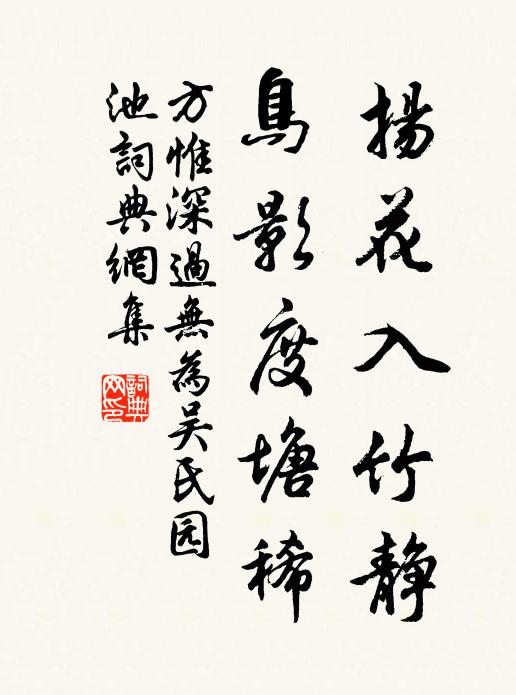 揚花入竹静
鳥影度塘稀
方惟深過無為吴氏园
池詞典網集
詞典
网印